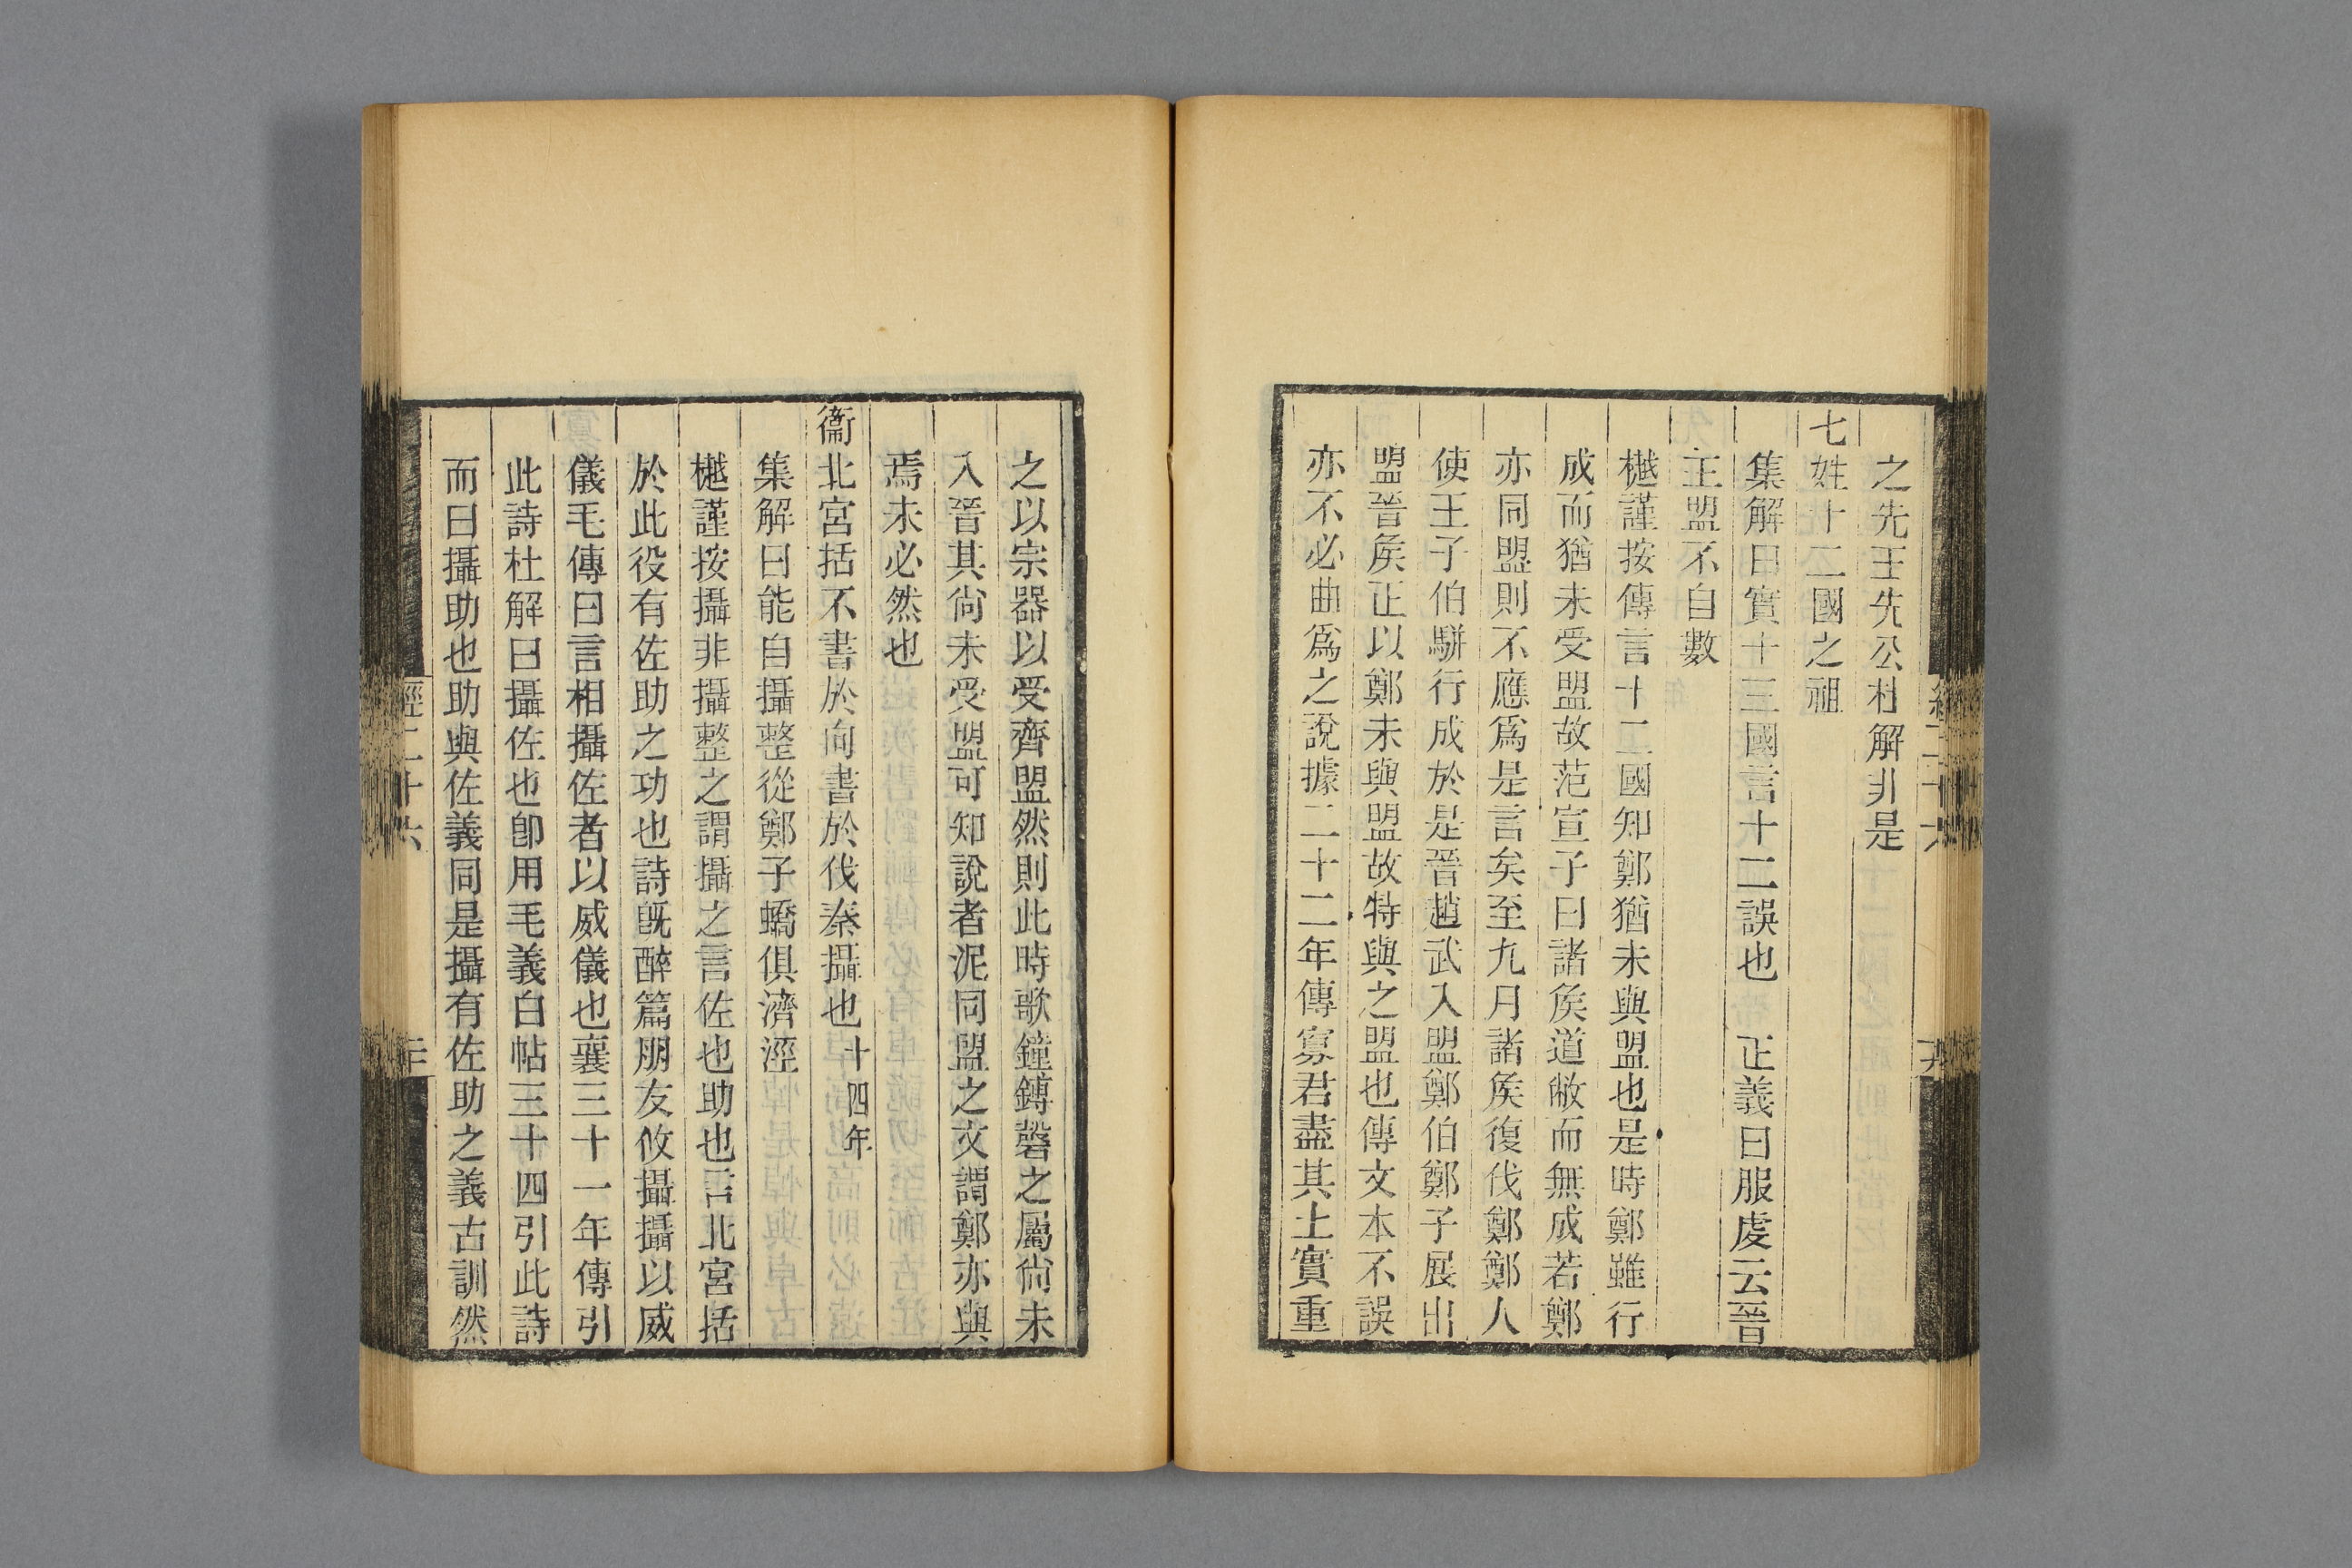 之先王先公杜解非是
七姓十二國之祖
集解曰實十三國言十二誤也　正義曰服虔云晉
主盟不自數
樾謹按傳言十二國知鄭猶未與盟也是時鄭雖行
成而猶未受盟故范宣子曰諸矦道敝而無成若鄭
亦同盟則不應爲是言矣至九月諸矦復伐鄭鄭人
使王子伯駢行成於是晉趙武入盟鄭伯鄭子展出
盟晉矦正以鄭未與盟故特與之盟也傳文本不誤
亦不必曲爲之說據二十二年傳寡君盡其土實重
之以宗器以受齊盟然則此時歌鐘鎛磬之屬尙未
入晉其尙未受盟可知說者泥同盟之文謂鄭亦與
焉未必然也
衞北宮括不書於向書於伐秦攝也十四年
集解曰能自攝整從鄭子蟜俱濟涇
樾謹按攝非攝整之謂攝之言佐也助也言北宮括
於此役有佐助之功也詩旣醉篇朋友攸攝攝以威
儀毛傳曰言相攝佐者以威儀也襄三十一年傳引
此詩杜解曰攝佐也卽用毛義白帖三十四引此詩
而曰攝助也助與佐義同是攝有佐助之義古訓然
經二十六